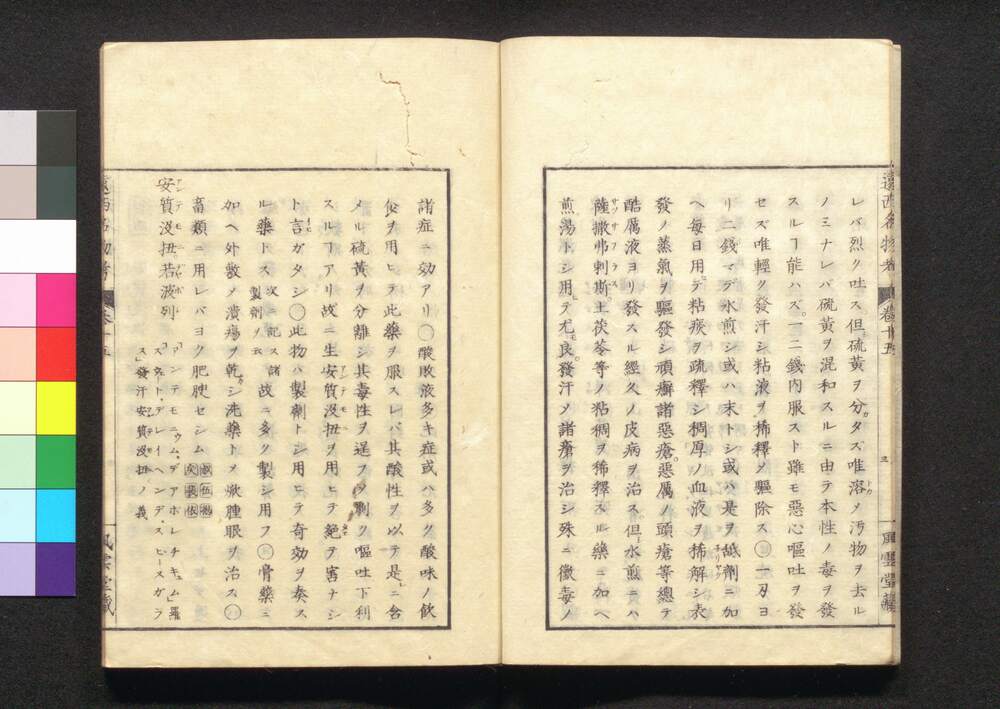 遠西名物考 卷廿五 三 風雲堂藏
レバ烈ク吐ス但硫黄ヲ分タズ唯溶メ汚物ヲ去ル
ノミナレバ硫黄ヲ混和スルニ由テ本性ノ毒ヲ發
スルヿ能ハズ。一二錢内服スト雖モ惡心嘔吐ヲ發
セズ唯輕ク發汗シ粘液ヲ稀釋メ驅除ス○一刃ヨ
リ二錢マデ水煎シ或ハ末トシ或ハ是ヲ舐劑ニ加
ヘ毎日用テ粘痰ヲ疏釋シ稠厚ノ血液ヲ稀解シ表
發ノ蒸氣ヲ驅發シ頑癬諸惡瘡。惡厲ノ頭瘡等總テ
酷厲液ヨリ發スル經久ノ皮病ヲ治ス但水煎ニハ
薩撒弗剌斯土茯苓等ノ粘稠ヲ稀釋スル藥ニ加ヘ
煎湯トシ用テ尤良。發汗メ諸瘡ヲ治シ殊ニ黴毒ノ
諸症ニ効アリ○酸敗液多キ症或ハ多ク酸味ノ飲
食ヲ用ヒテ此藥ヲ服スレバ其酸性ヲ以テ是ニ含
メル硫黄ヲ分離シ其毒性ヲ逞フメ劇ク嘔吐下利
スルヿアリ故ニ生安質沒扭ヲ用ヒテ絶テ害ナシ
ト言ガタシ○此物ハ製劑トシ用ヒテ奇効ヲ奏ス
ル藥トス次ニ記ス諸製劑ヲ云故ニ多ク製シ用フ 骨藥ニ
加ヘ外敷メ潰瘍ヲ乾シ洗藥トメ焮腫眼ヲ治ス○
畜類ニ用レバヨク肥腴セシム
安質沒扭若波列 「アンテモニウム、デアホレチキュム」羅
「スウェート、デレイヘンデ、スピースガラ
ス」發汗安質沒扭ノ義
遠西名物考 卷廿五 風雲堂藏